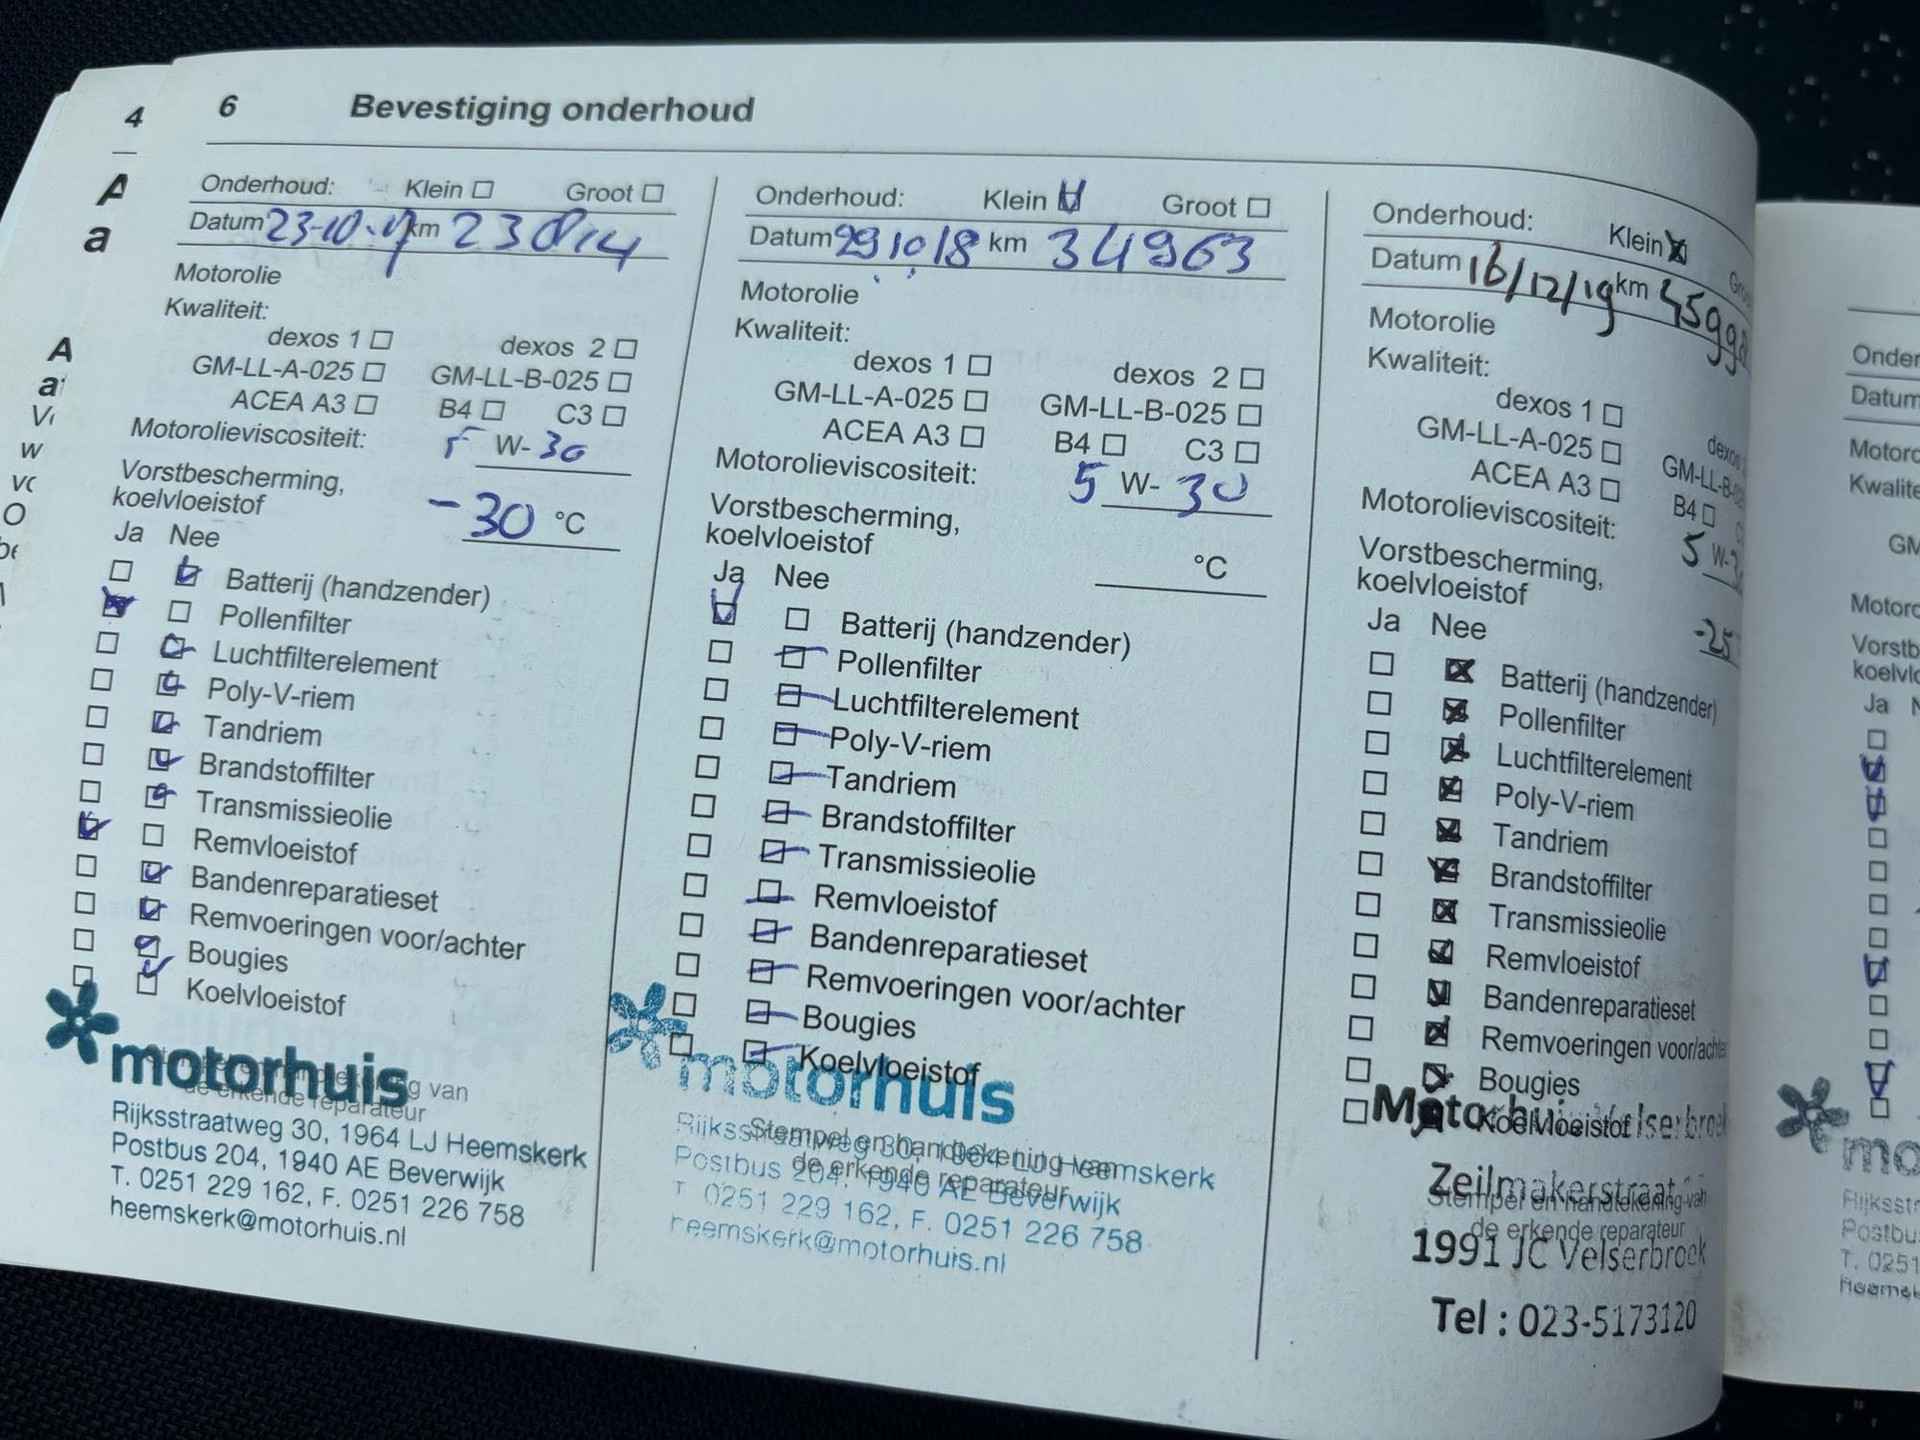 4
A
a
A
w
O
6 Bevestiging onderhoud
Onderhoud: Klein Groot
Datum 23-10-17 km 23814
Motorolie
Kwaliteit:
dexos 1 dexos 2
GM-LL-A-025 GM-LL-B-025
ACEA A3 B4 C3
Motorolieviscositeit: 5 W-30
Vorstbescherming,
koelvloeistof -30 °C
Ja Nee
Batterij (handzender)
Pollenfilter
Luchtfilterelement
Poly-V-riem
Tandriem
Brandstoffilter
Transmissieolie
Remvloeistof
Bandenreparatieset
Remvoeringen voor/achter
Bougies
Koelvloeistof
motorhuis
van
de erkende reparateur
Rijksstraatweg 30, 1964 LJ Heemskerk
Postbus 204, 1940 AE Beverwijk
T. 0251 229 162, F. 0251 226 758
heemskerk@motorhuis.nl
Onderhoud: Klein Groot
Datum 29 10 18 km 34963
Motorolie
Kwaliteit:
dexos 1 dexos 2
GM-LL-A-025 GM-LL-B-025
ACEA A3 B4 C3
Motorolieviscositeit: 5 W- 30
Vorstbescherming,
koelvloeistof °C
Ja Nee
Batterij (handzender)
Pollenfilter
Luchtfilterelement
Poly-V-riem
Tandriem
Brandstoffilter
Transmissieolie
Remvloeistof
Bandenreparatieset
Remvoeringen voor/achter
Bougies
Koelvloeistof
motorhuis
Stempel en handtekening van
de erkende reparateur
Rijksstraatweg 30, 1964 LJ Heemskerk
Postbus 204, 1940 AE Beverwijk
T. 0251 229 162, F. 0251 226 758
heemskerk@motorhuis.nl
Onderhoud: Klein
Datum 16/12/19 km
Motorolie
Kwaliteit:
dexos 1
GM-LL-A-025 GM-LL-B-025
ACEA A3 B4
Motorolieviscositeit: 5 W-
Vorstbescherming,
koelvloeistof -25
Ja Nee
Batterij (handzender)
Pollenfilter
Luchtfilterelement
Poly-V-riem
Tandriem
Brandstoffilter
Transmissieolie
Remvloeistof
Bandenreparatieset
Remvoeringen voor/achter
Bougies
Koelvloeistof
Motorhuis Velserbroek
Zeilmakerstraat
Stempel en handtekening van
de erkende reparateur
1991 JC Velserbroek
Tel : 023-5173120
Onder
Datum
Motoro
Kwalite
GM
Motoro
Vorstb
koelvlo
Ja N
mo
Rijksstr
Postbu
T. 0251
heemsk